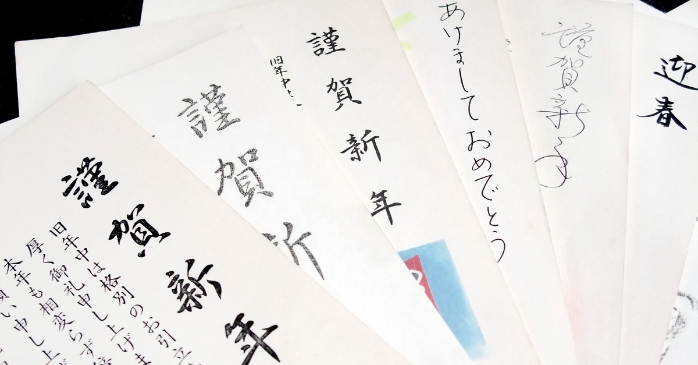 謹賀新年
旧年中は格別のお引立
厚く御礼申し上げま
本年も相変らず
願い申し上げ
謹賀新
謹賀新年
旧年中
あけまして おめでとう
謹賀新年
迎春